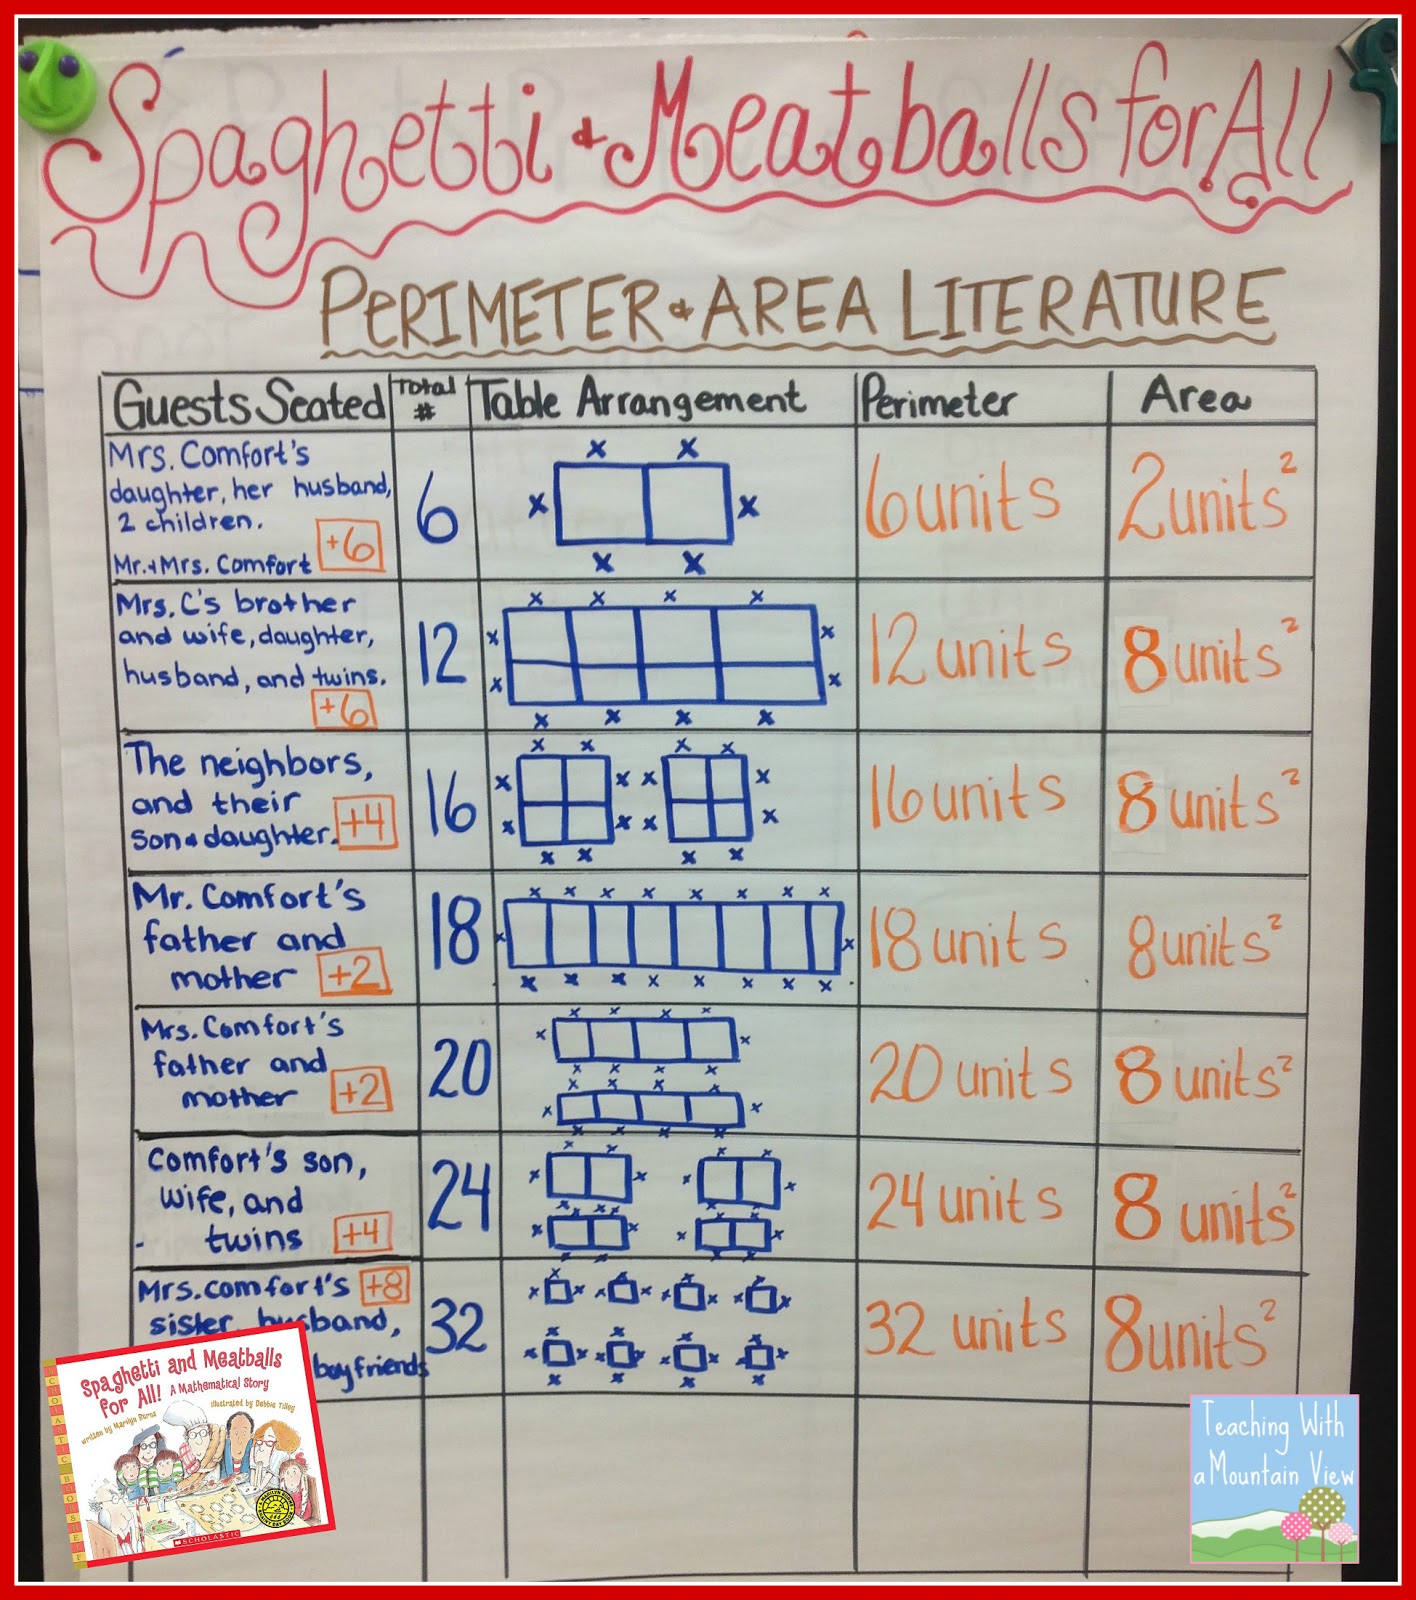 Spaghetti & Meatballs for All
PERIMETER & AREA LITERATURE
Guests Seated
Total
#
Table Arrangement
Perimeter
Area
Mrs. Comfort's
daughter, her husband,
2 children.
Mr. & Mrs. Comfort
+6
6
x x
x x
x x
6 units
2 units²
Mrs. C's brother
and wife, daughter,
husband, and twins.
+6
12
x x x x
x x
x x
x x x x
12 units
8 units²
The neighbors,
and their
son & daughter.
+4
16
x x x x
x x x x
x x x x
x x x x
16 units
8 units²
Mr. Comfort's
father and
mother
+2
18
x x x x x x x x
x x
x x x x x x x x
18 units
8 units²
Mrs. Comfort's
father and
mother
+2
20
x x x x
x x
x x x x
x x x x
x x
x x x x
20 units
8 units²
Comfort's son,
wife, and
- twins
+4
24
x x x x
x x x x
x x x x
x x x x
x x x x
x x x x
24 units
8 units²
Mrs. Comfort's +8
sister, husband,
boyfriends
32
x x x x
x x x x x x x x
x x x x
x x x x x x x x
x x x x
32 units
8 units²
SCHOLASTIC BOOKSHELF
Spaghetti and Meatballs
for All! A Mathematical Story
written by Marilyn Burns
illustrated by Debbie Tilley
SCHOLASTIC
Teaching With
a Mountain View